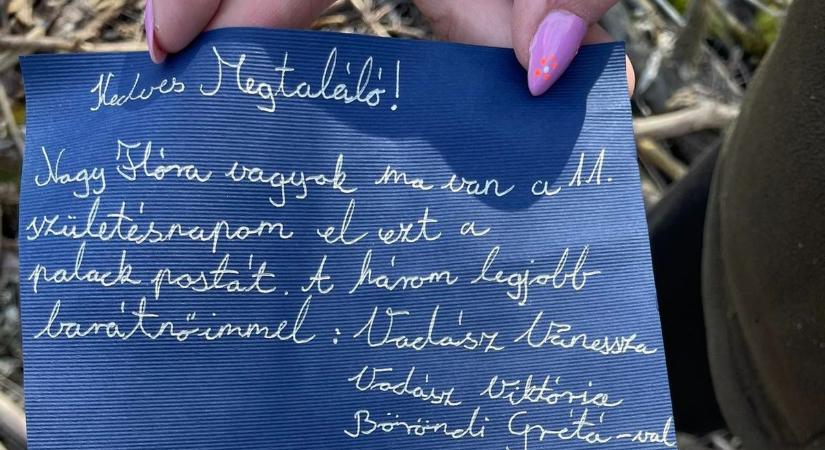 Kedves Megtaláló!
Nagy Flóra vagyok ma van a 11.
születésnapom el ezt a
palack postát. A három legjobb
barátnőimmel : Vadász Vanessza
Vadász Viktória
Böröndi Gréta-val